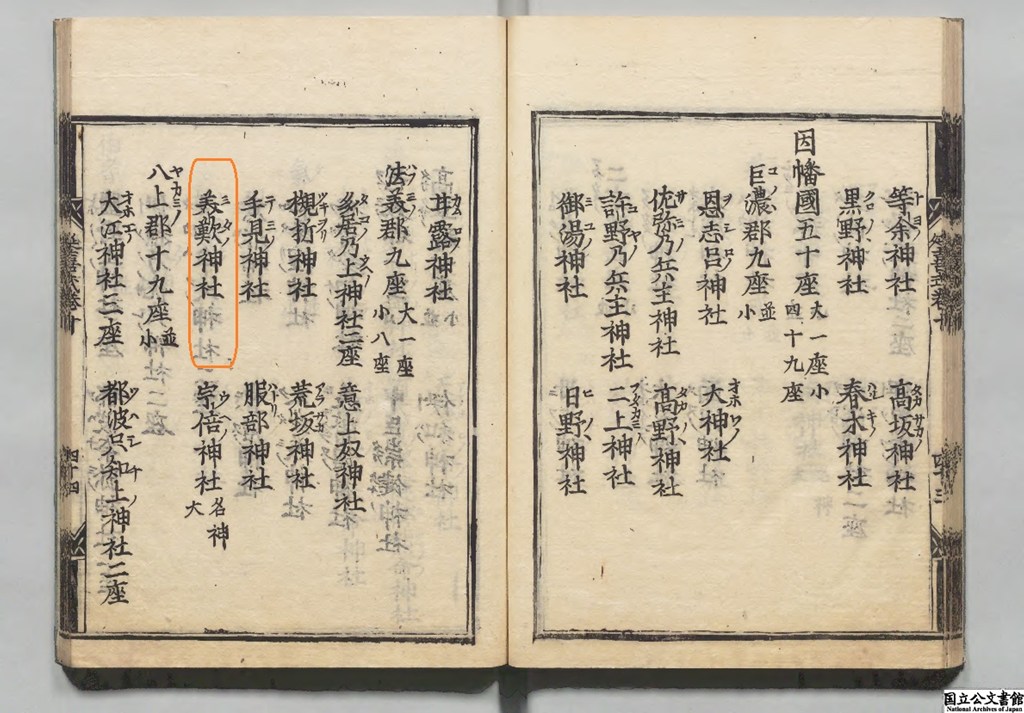 等余神社 高坂神社
黒野神社 春木神社
因幡國五十座 大一座小四十九座
巨濃郡九座 並小
恩志呂神社 大神社
佐弥乃兵主神社 髙野神社
許野乃兵主神社 二上神社
御湯神社 日野神社
甘露神社
法美郡九座 大一座小八座
多居乃上神社二座 意上奴神社
槻折神社 荒坂神社
手見神社 服部神社
美歎神社 宇倍神社 名神大
八上郡十九座 並小
大江神社三座 都波只知上神社二座
延喜式卷十 四十三
延喜式卷十 四十四
国立公文書館
National Archives of Japan